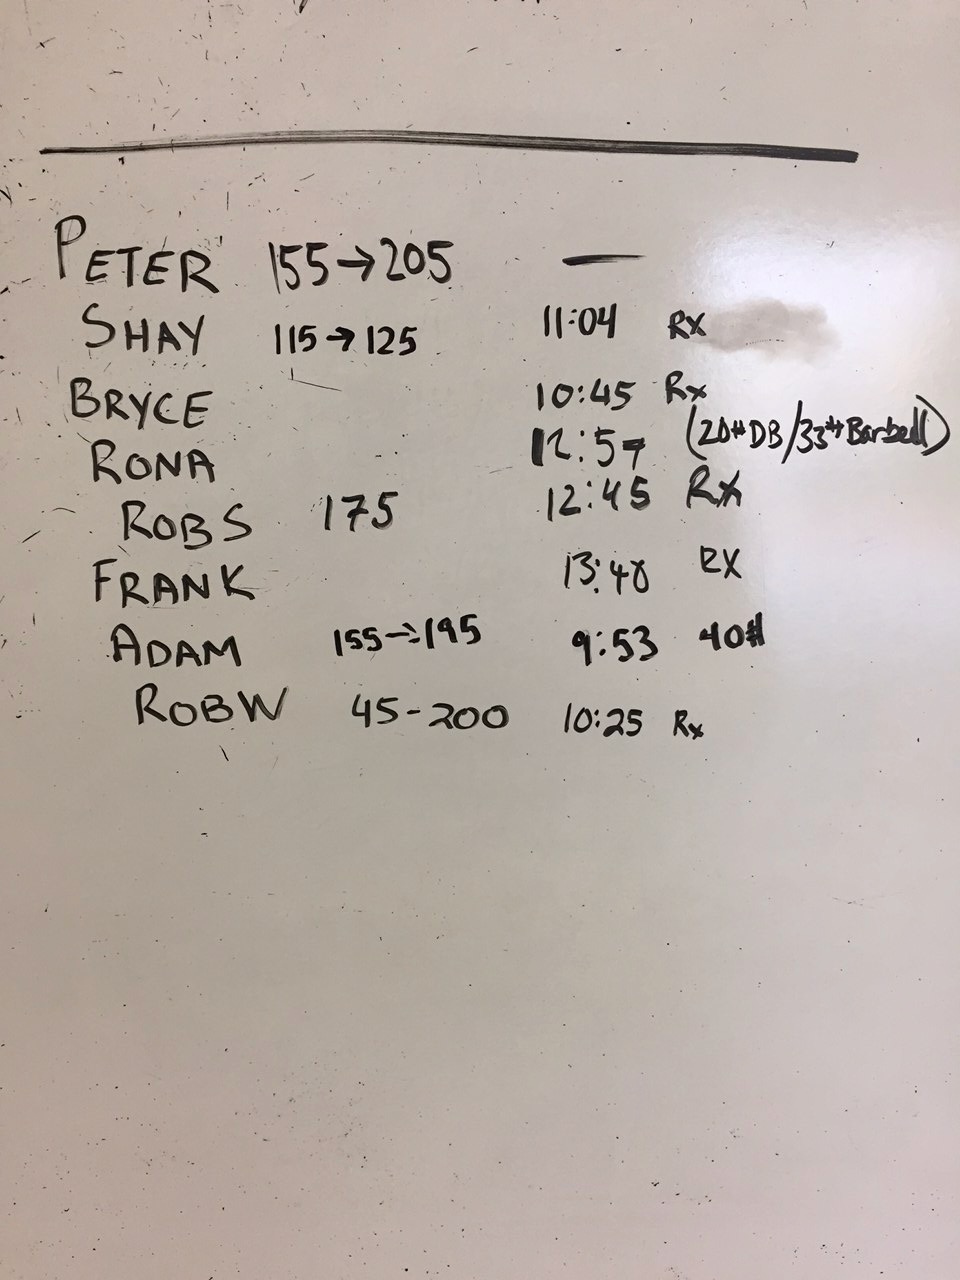 PETER 155→205 —
SHAY 115→125 11:04 RX
BRYCE 10:45 Rx
RONA 12:57 (20# DB/33# Barbell)
ROB S 175 12:45 RX
FRANK 13:48 RX
ADAM 155→195 9:53 40#
ROB W 45-200 10:25 Rx